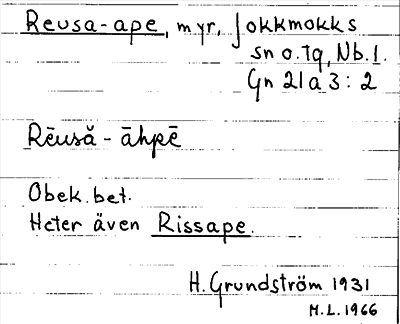 Reusa-ape, myr, Jokkmokks
sn o. tg, Nb. l.
Gn 21a3:2
Rēusă - āhpē
Obek. bet.
Heter även Rissape.
H. Grundström 1931
M.L. 1966